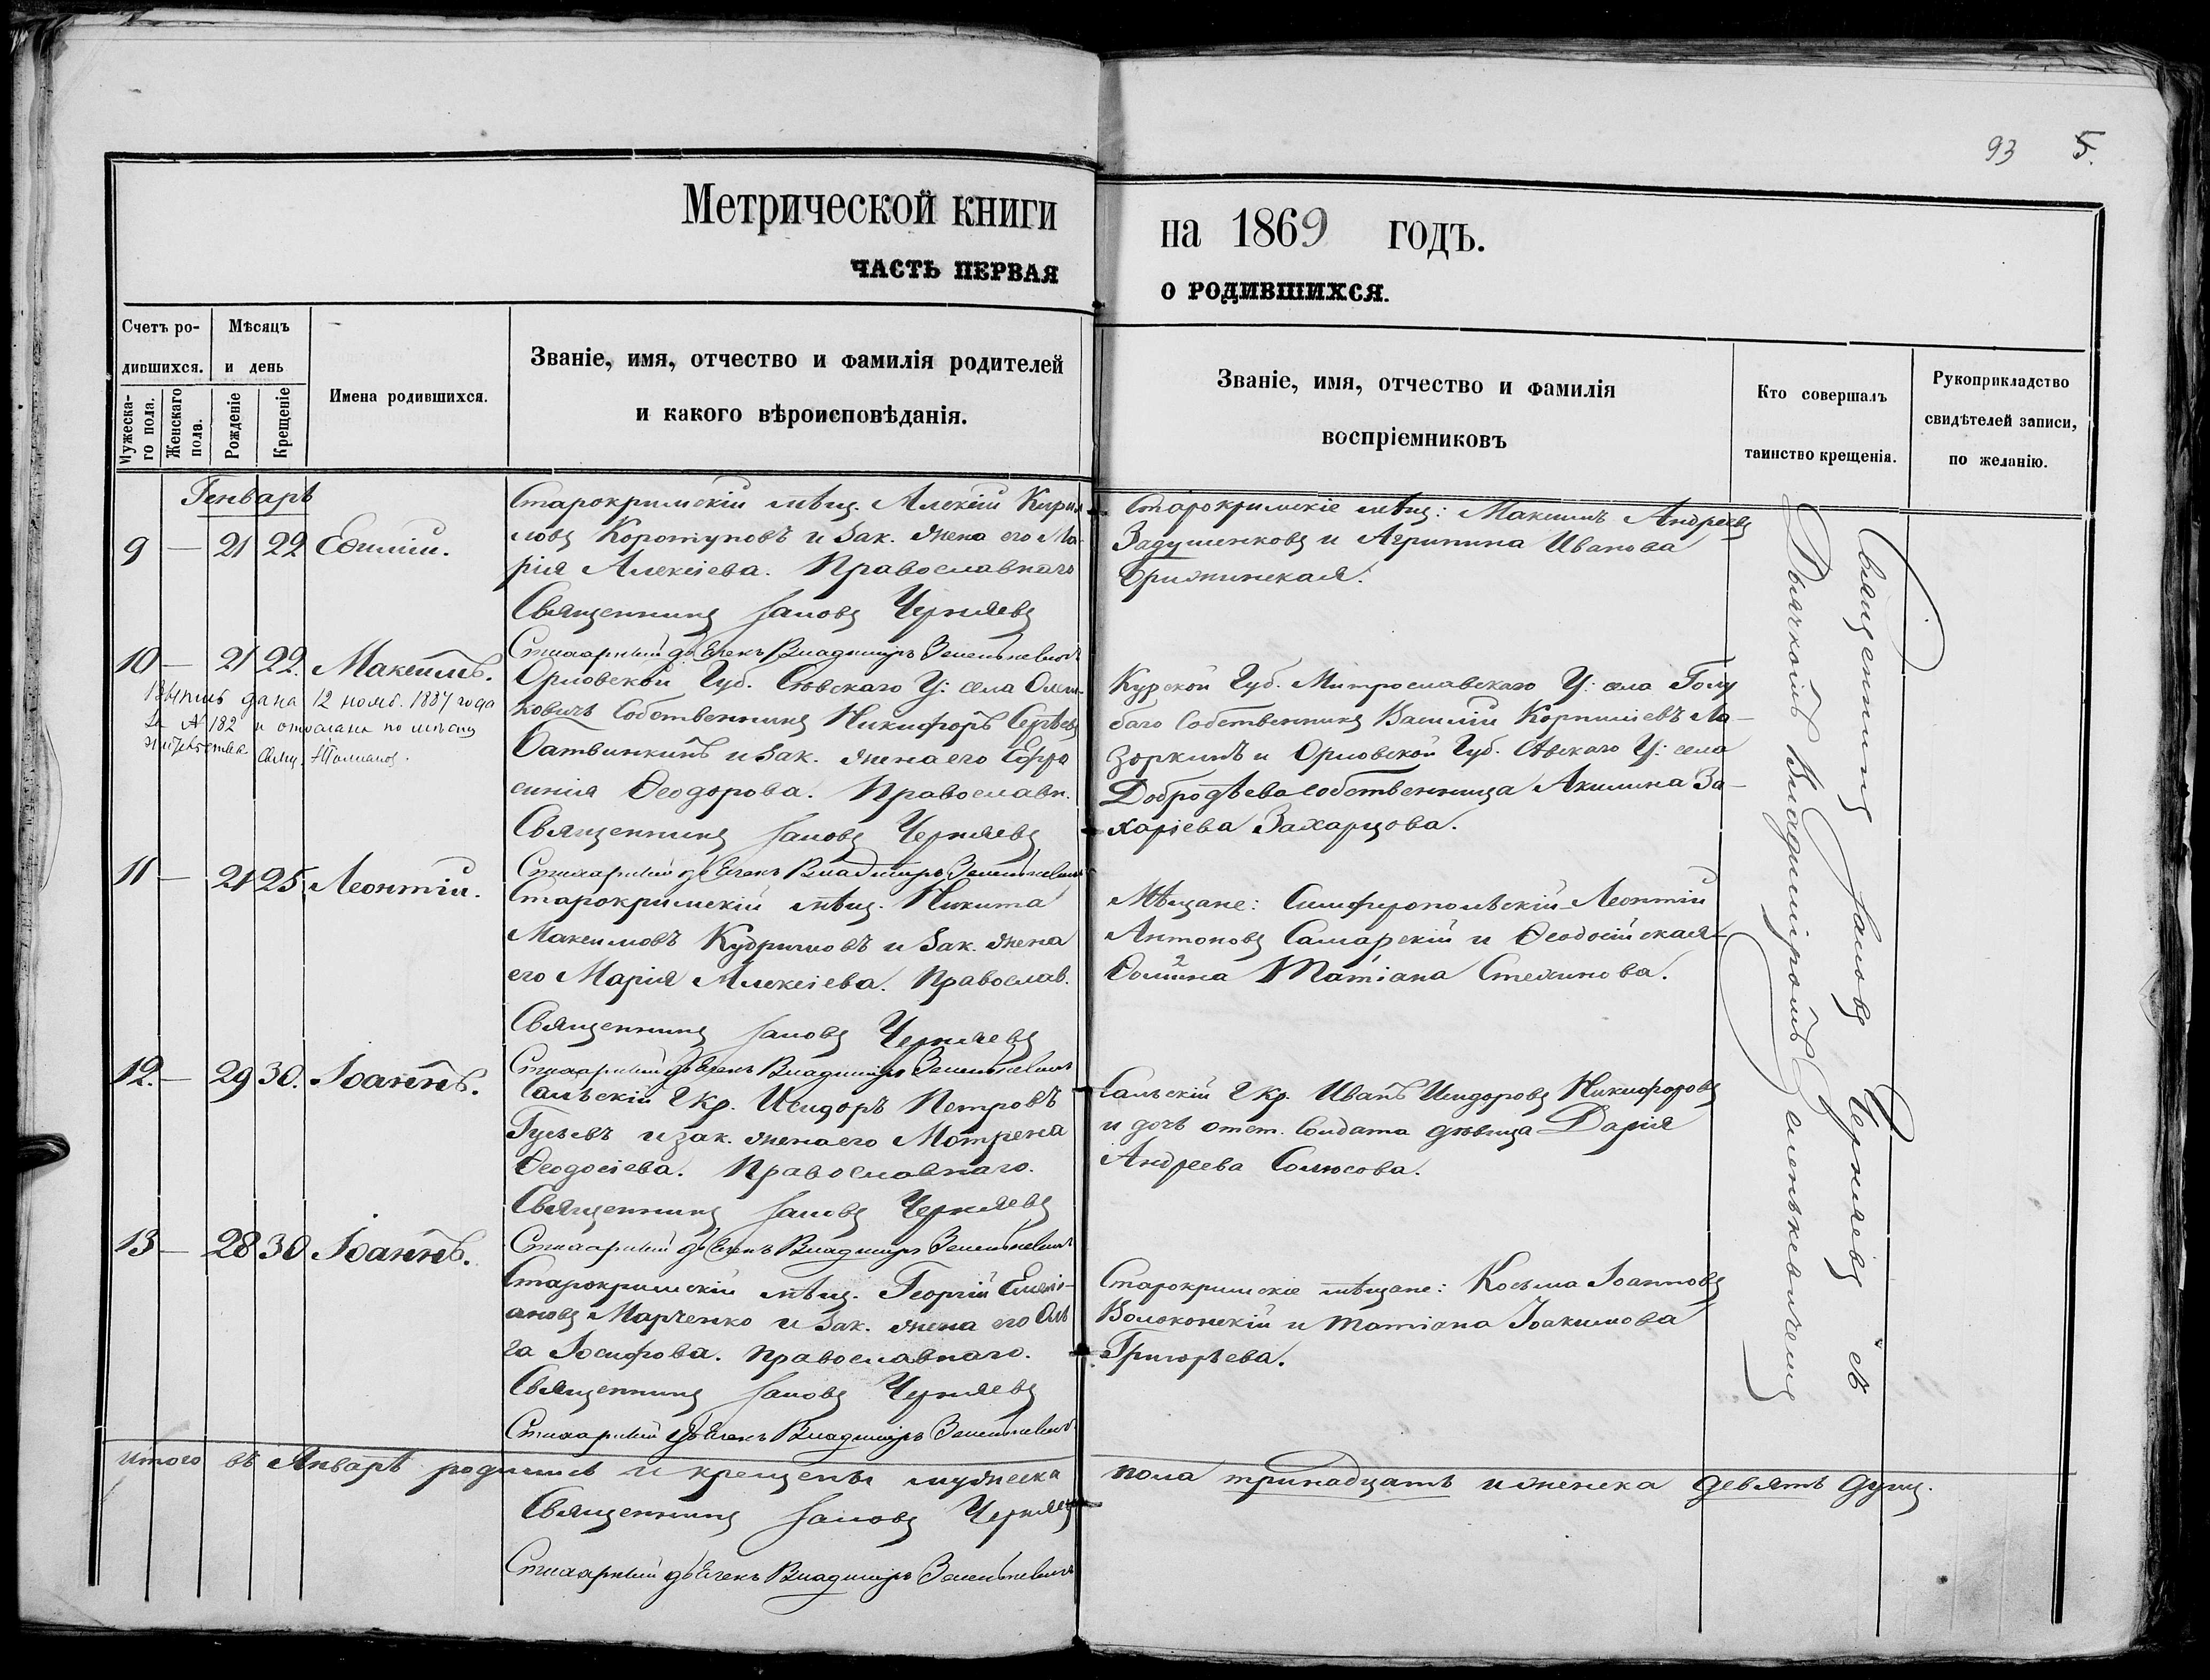 93 5.
Метрической книги
на 1869 годъ.
ЧАСТЬ ПЕРВАЯ
О РОДИВШИХСЯ.
Счетъ ро-
дившихся.
Мужеска-
го пола.
Женскаго
пола.
Мѣсяцъ
и день
Рожденіе
Крещеніе
Имена родившихся.
Званіе, имя, отчество и фамилія родителей
и какого вѣроисповѣданія.
Званіе, имя, отчество и фамилія
воспріемниковъ
Кто совершалъ
таинство крещенія.
Рукоприкладство
свидѣтелей записи,
по желанію.
Генварь
9 — 21 22 Евѳимій.
Старокримскій мѣщ. Алексій Кири
ловъ Коротуновъ и зак. жена его Ма-
рія Алексіева. Православнаго
Священникъ Іаковъ Черняевъ
Стихарный дьячекъ Владиміръ Зеленкевичъ
Старокримскіе мѣщ: Максимъ Андреевъ
Задушенковъ и Агрипина Иванова
10 — 21 22. Максимъ.
дана 12 нояб. 1887 года
за № 182 и отослана по мѣсту
жительства.
Орловской Губ. Сѣвскаго У: села
Собственникъ Никифоръ Сергѣевъ
Батвинкинъ и зак. жена его Евфро
синія Ѳеодорова. Православн.
Священникъ Іаковъ Черняевъ
Стихарный дьячекъ Владиміръ Зеленкевичъ
Курской Губ. Митрославскаго У: села Голу
баго Собственникъ Василій Корнилиевъ Ла-
зоркинъ и Орловской Губ. Сѣвскаго У: села
Добродѣева собственница Акилина За-
харіева Захарцова.
11 — 21 25 Леонтій.
Старокримскій мѣщ. Никита
Максимовъ и зак. жена
его Марія Алексіева. Православ.
Священникъ Іаковъ Черняевъ
Стихарный дьячекъ Владиміръ Зеленкевичъ
Мѣщане: Симферопольскій Леонтій
Антоновъ Самарскій и Ѳеодосійская
Татіана Стехинова.
12. — 29 30. Іоаннъ.
Сальскій 2 кр. Исидоръ Петровъ
Гусевъ и зак. жена его Мотрена
Ѳеодосіева. Православнаго.
Священникъ Іаковъ Черняевъ
Стихарный дьячекъ Владиміръ Зеленкевичъ
Сальскій 2 кр. Иванъ Исидоровъ Никифоровъ
и дочь отст. Солдата дѣвица Дарія
Андреева
13 — 28 30 Іоаннъ.
Старокримскій мѣщ. Георгій Емелі-
ановъ Марченко и зак. жена его Оль
га Іосифова. Православнаго.
Священникъ Іаковъ Черняевъ
Стихарный дьячекъ Владиміръ Зеленкевичъ
Старокримскіе мѣщане: Косьма Іоанновъ
Волоконскій и Татіана Іоакимова
Григорьева.
Священникъ Іаковъ Черняевъ съ
Дьячкомъ Владиміромъ Зеленкевичемъ
Итого въ Январѣ родились и крещены мужеска пола тринадцать и женска девять душъ.
Священникъ Іаковъ Черняевъ
Стихарный дьячекъ Владиміръ Зеленкевичъ